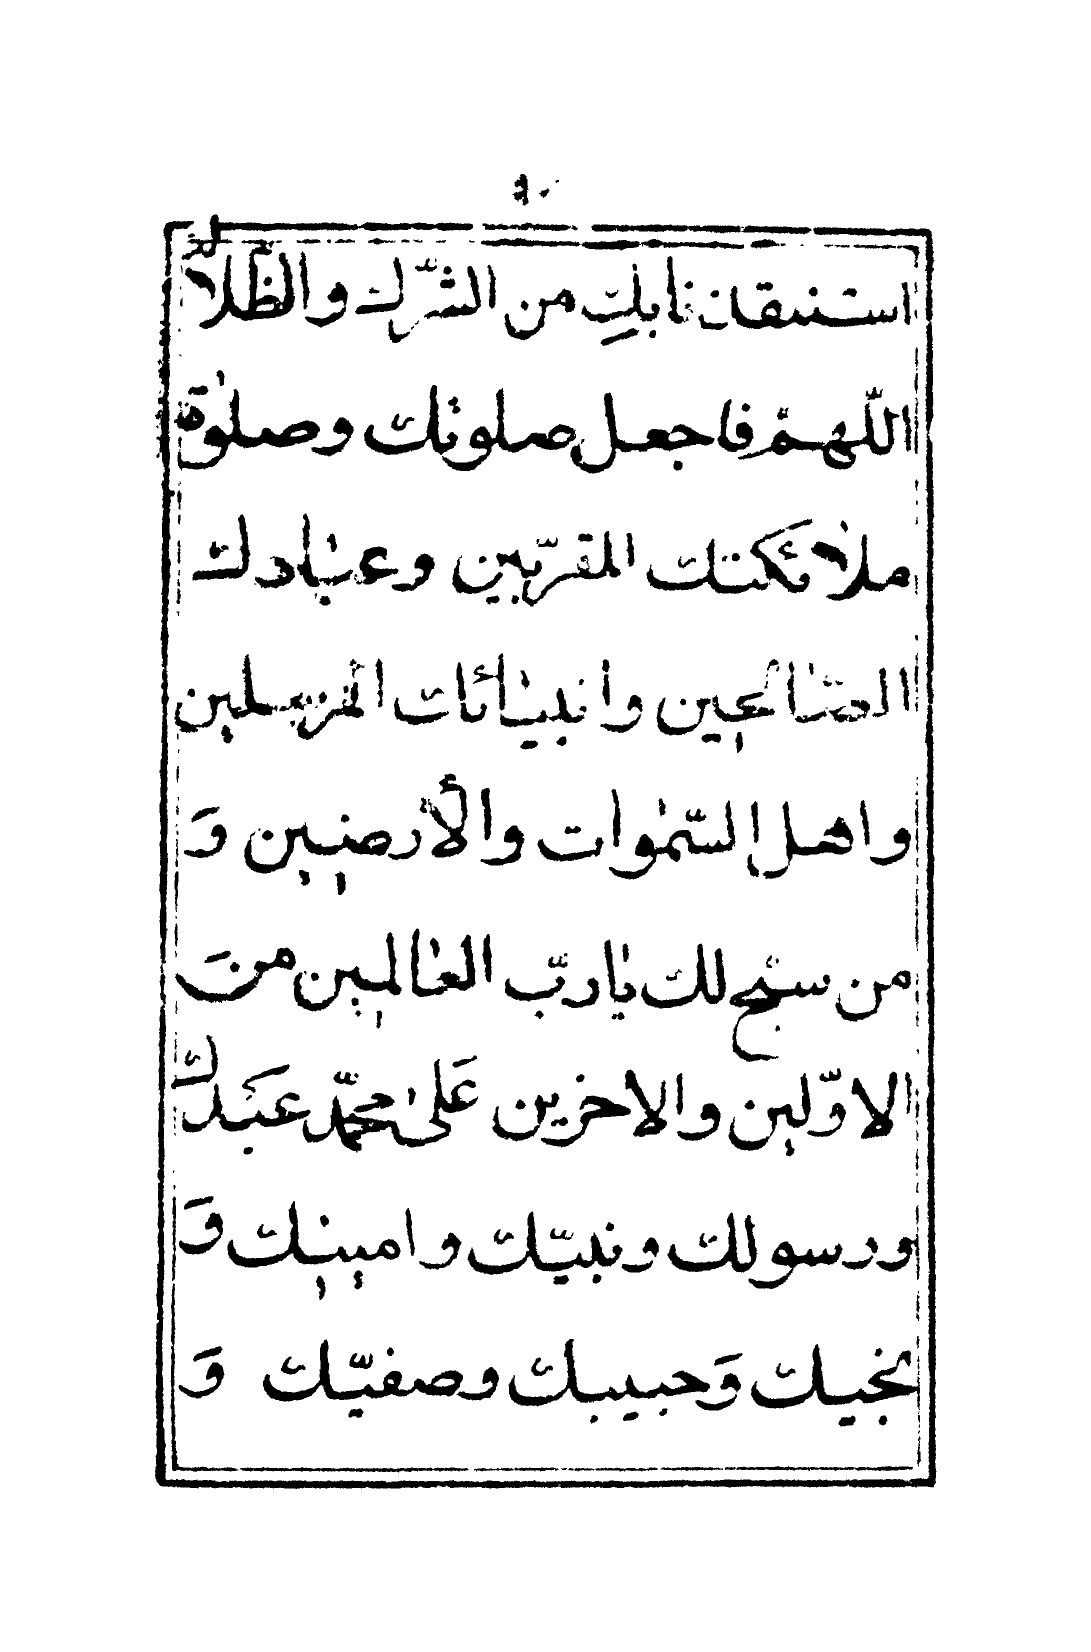 ٩٠
استنقاذنا بك من الشّرك والضّلال
اللّهمّ فاجعل صلوتك وصلوة
ملائكتك المقرّبين وعبادك
الصّالحين وانبيائك المرسلين
واهل السّموات والأرضين وَ
من سبّح لك يا ربّ العالمين منَ
الاوّلين والاخرين عَلى محمّد عَبدك
ورسولك ونبيّك وامينك وَ
نجيك وَحبيبك وصفيّك وَ